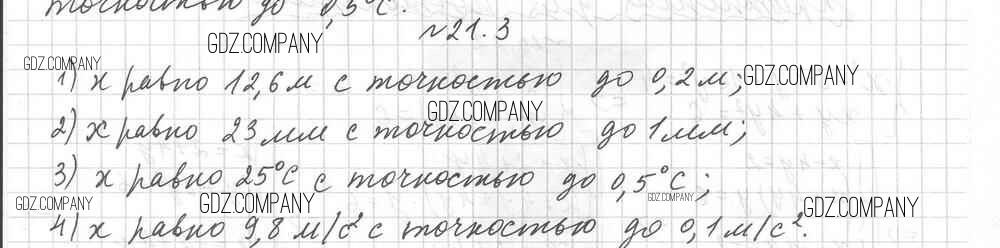 точностью до 0,5°C.
№21.3
GDZ.COMPANY
GDZ.COMPANY
1) x равно 12,6 м с точностью до 0,2 м; GDZ.COMPANY
GDZ.COMPANY
2) x равно 23 мм с точностью до 1 мм;
3) x равно 25°C с точностью до 0,5°C;
GDZ.COMPANY GDZ.COMPANY GDZ.COMPANY GDZ.COMPANY
4) x равно 9,8 м/с² с точностью до 0,1 м/с².